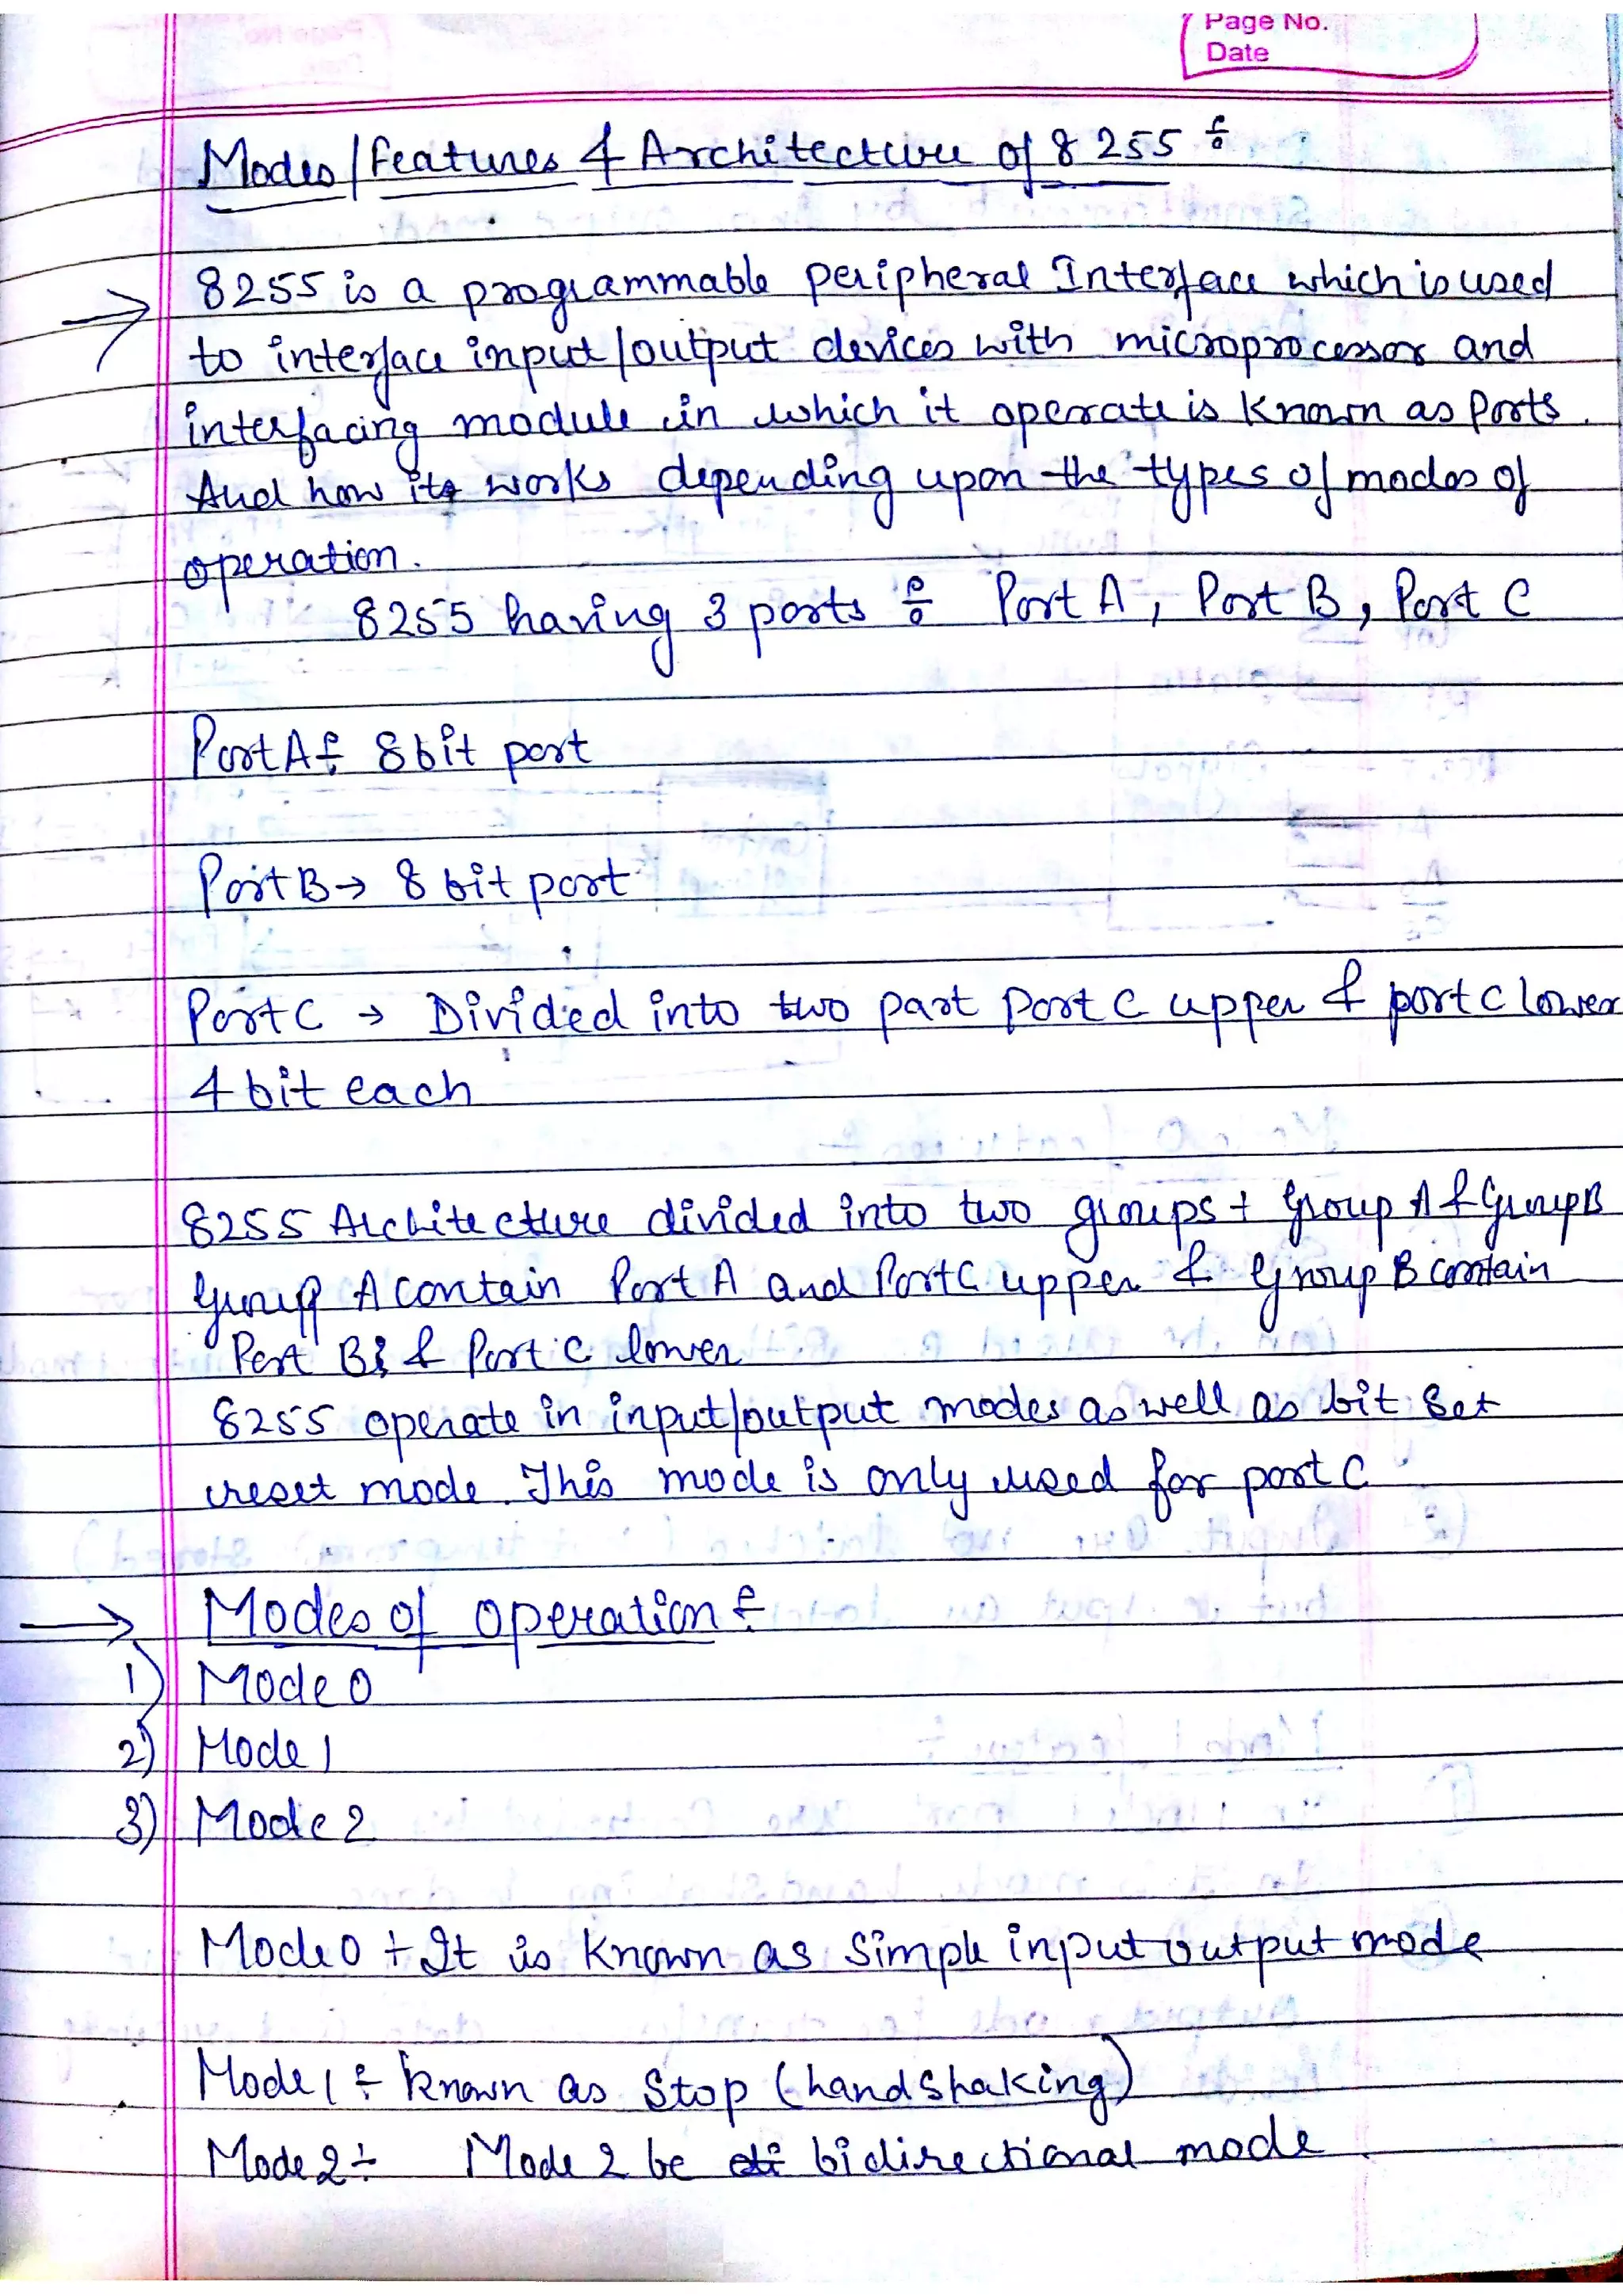 Page No.
Date
Modes/Features & Architecture of 8255 :-
→ 8255 is a programmable peripheral Interface which is used
to interface input/output devices with microprocessor and
interfacing module in which it operate is Known as Ports.
And how its works depending upon the types of modes of
operation.
8255 having 3 ports :- Port A, Port B, Port C
Port A :- 8 bit port
Port B → 8 bit port
Port C → Divided into two part port C upper & port C lower
4 bit each
8255 Architecture divided into two groups :- Group A & Group B
Group A contain Port A and Port C upper & Group B contain
Port B & Port C lower
8255 operate in input/output modes as well as bit Set
reset mode. This mode is only used for port C
→ Modes of operation :-
1) Mode 0
2) Mode 1
3) Mode 2
Mode 0 :- It is Known as Simple input output mode
Mode 1 :- Known as Stop (handshaking)
Mode 2 :- Mode 2 be bidirectional mode